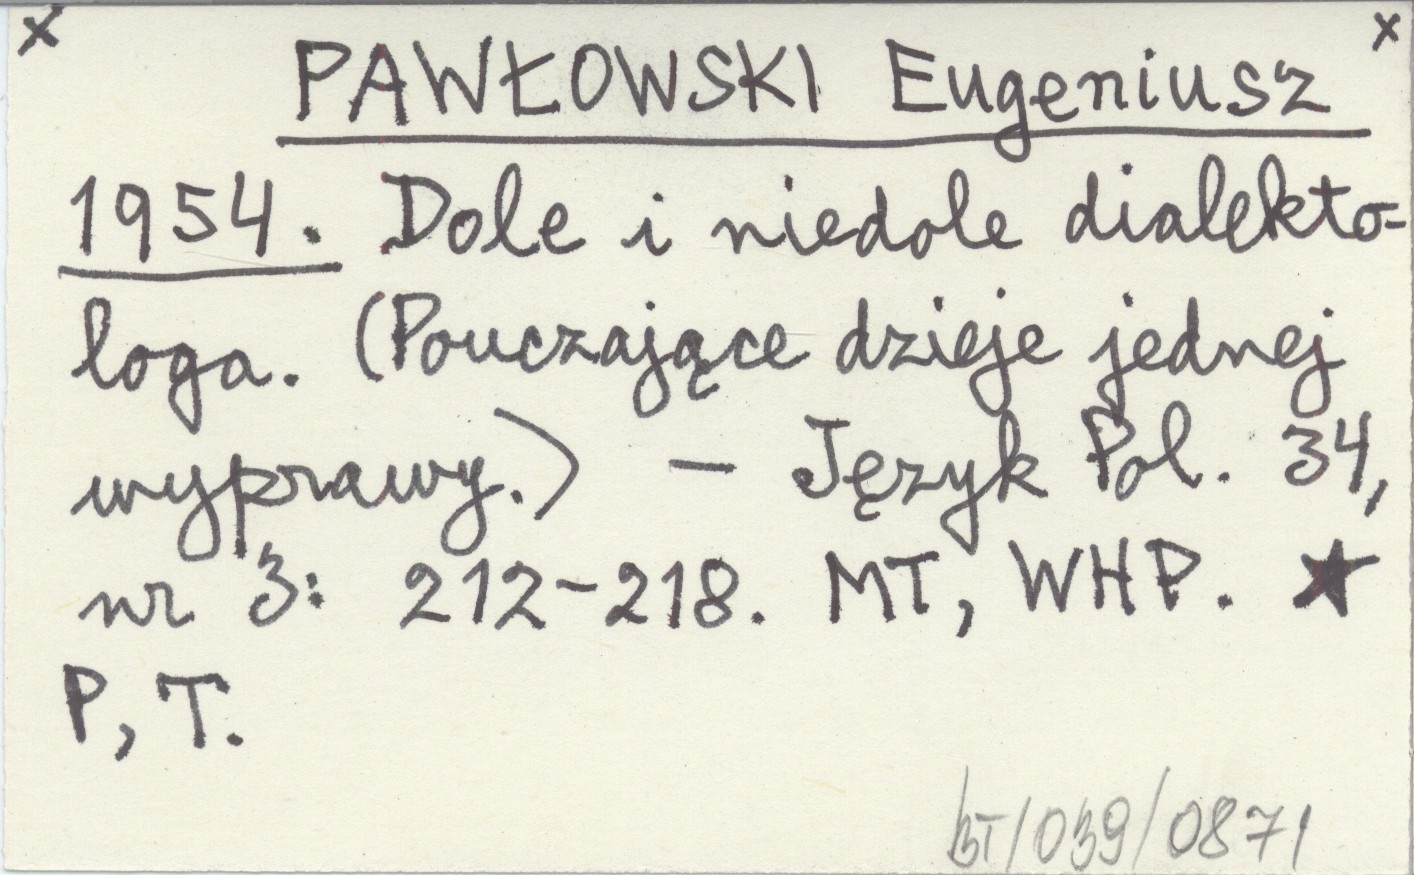 x x
PAWŁOWSKI Eugeniusz
1954. Dole i niedole dialekto-
loga. (Pouczające dzieje jednej
wyprawy.) — Język Pol. 34,
nr 3: 212-218. MT, WHP. ★
P, T.
BT/039/0871